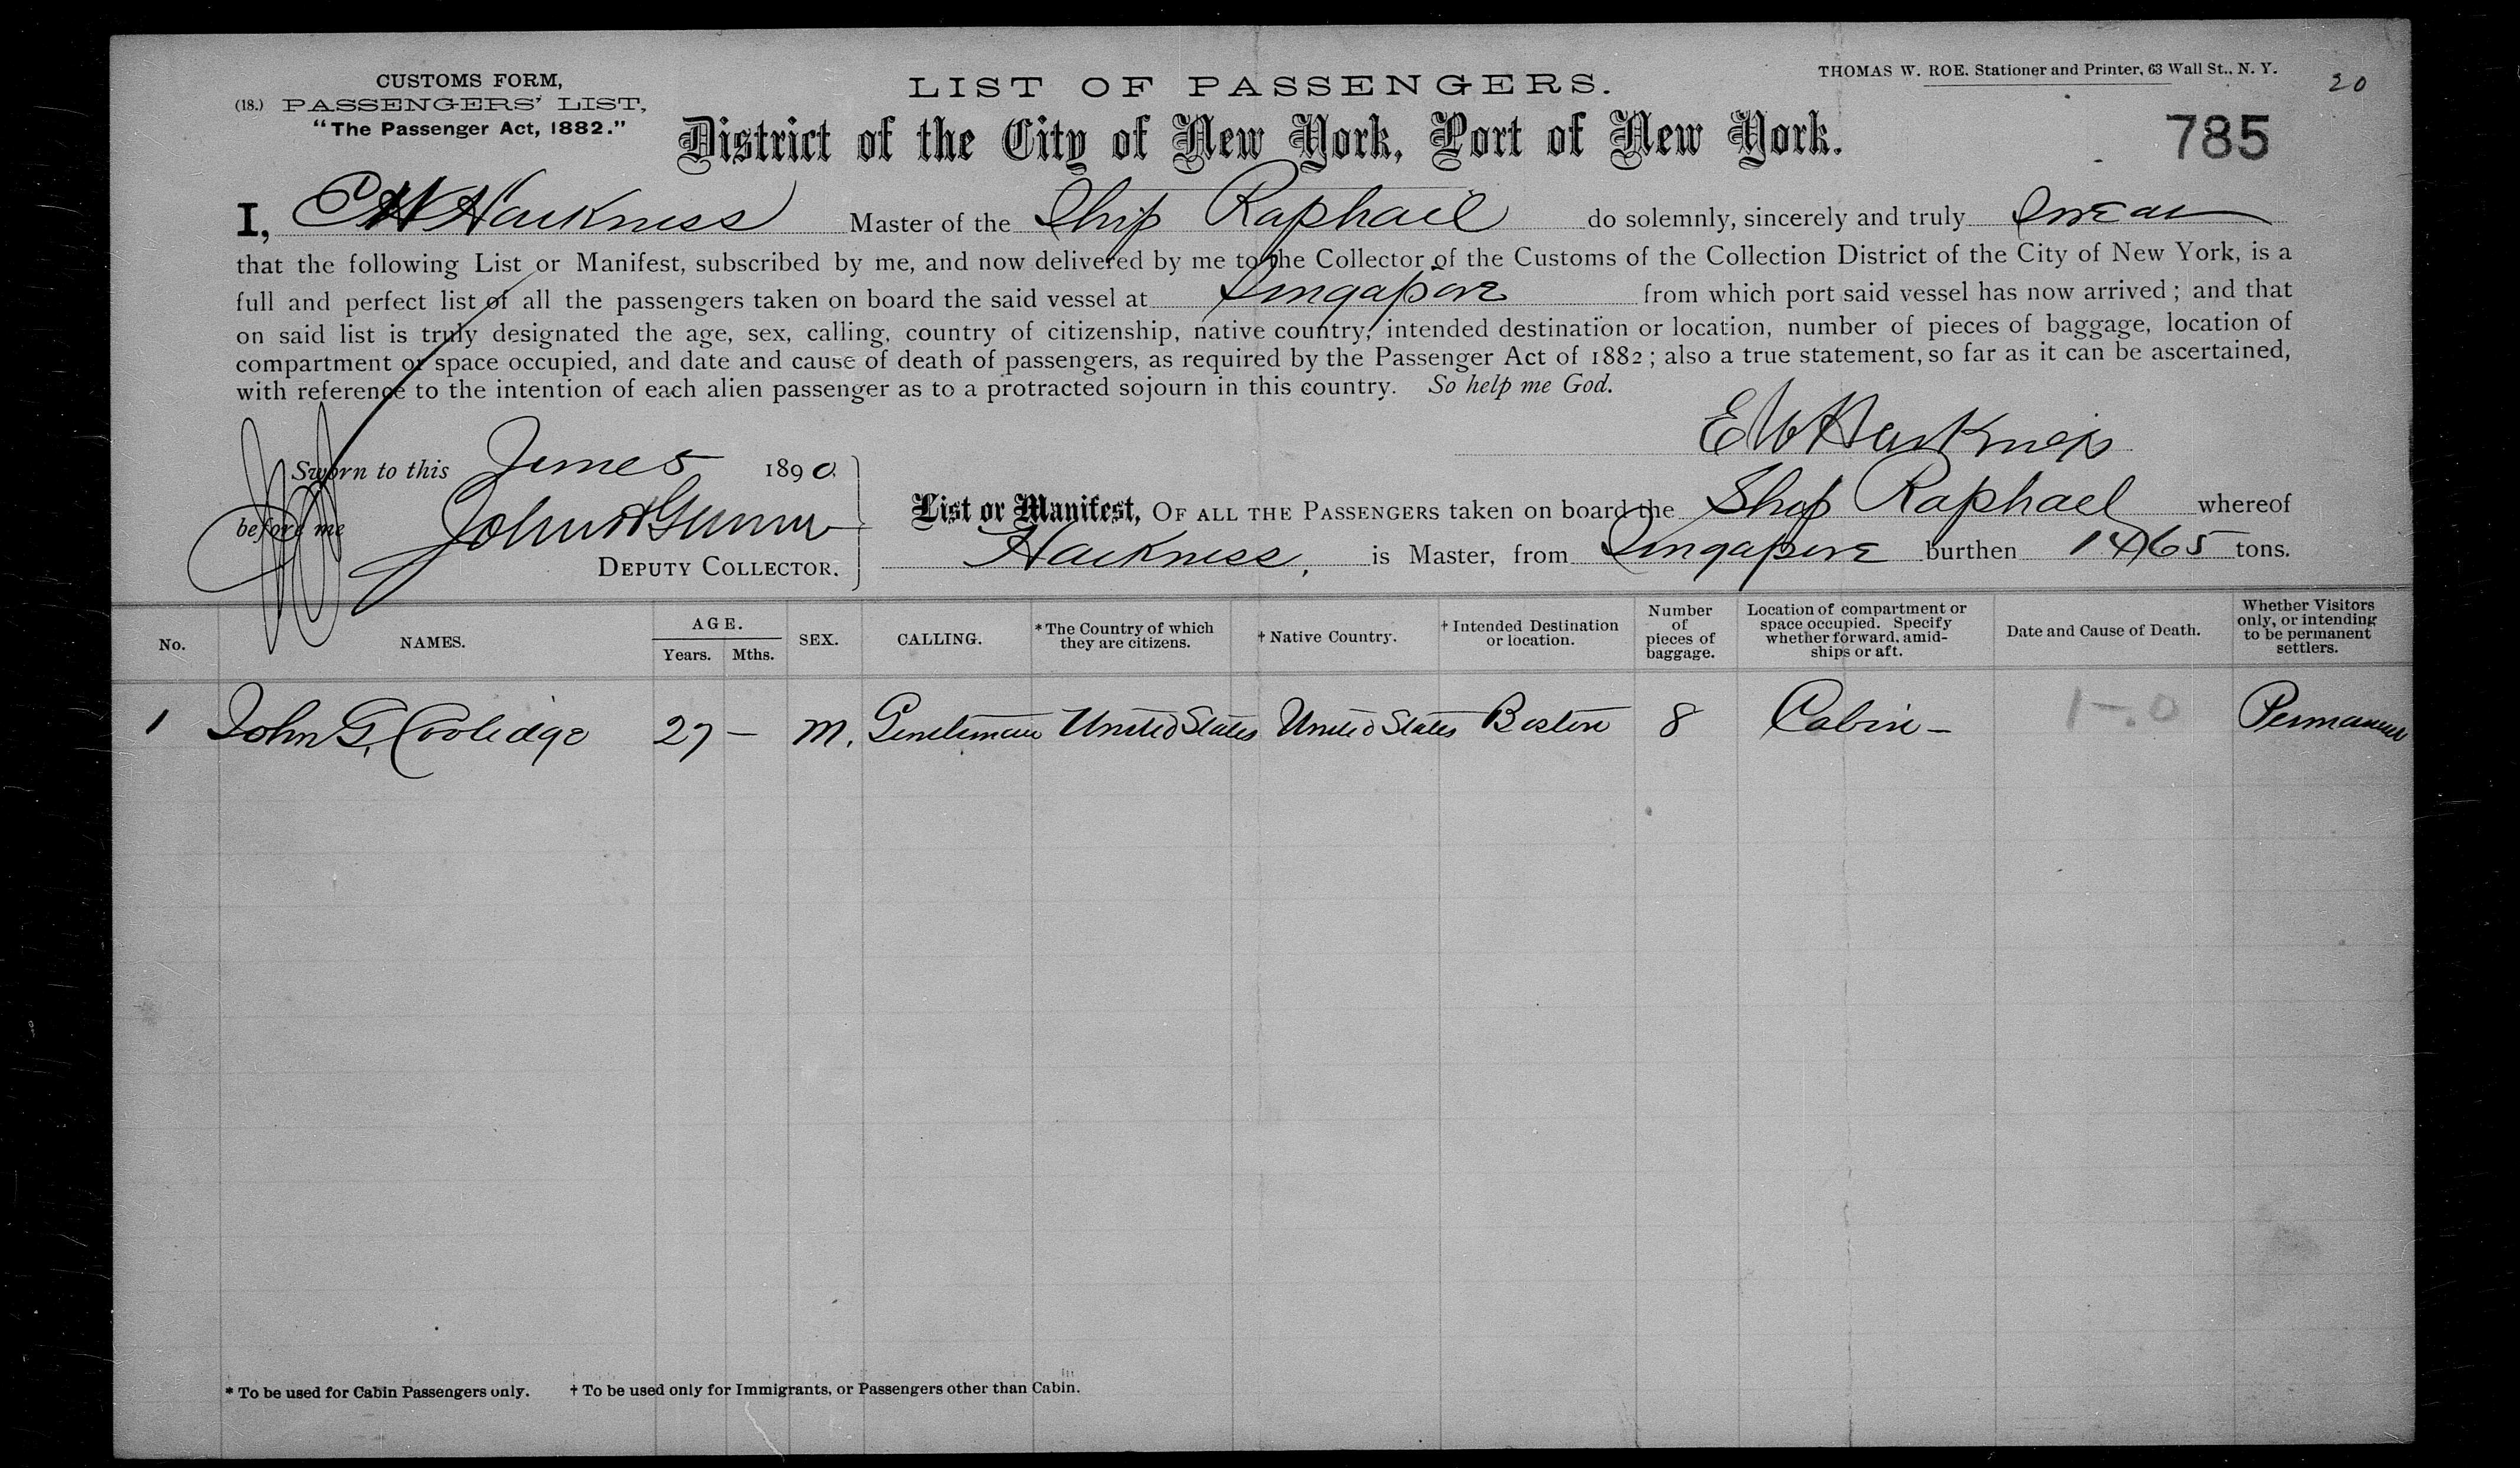 CUSTOMS FORM,
(18.) PASSENGERS' LIST,
"The Passenger Act, 1882."
LIST OF PASSENGERS.
THOMAS W. ROE. Stationer and Printer, 63 Wall St., N. Y.
20
District of the City of New York, Port of New York.
785
I, E W Harkness Master of the Ship Raphael do solemnly, sincerely and truly swear
that the following List or Manifest, subscribed by me, and now delivered by me to the Collector of the Customs of the Collection District of the City of New York, is a
full and perfect list of all the passengers taken on board the said vessel at Singapore from which port said vessel has now arrived; and that
on said list is truly designated the age, sex, calling, country of citizenship, native country, intended destination or location, number of pieces of baggage, location of
compartment or space occupied, and date and cause of death of passengers, as required by the Passenger Act of 1882; also a true statement, so far as it can be ascertained,
with reference to the intention of each alien passenger as to a protracted sojourn in this country. So help me God.
E W Harkness
Sworn to this June 5 1890
before me John A
DEPUTY COLLECTOR.
List or Manifest, OF ALL THE PASSENGERS taken on board the Ship Raphael whereof
Harkness, is Master, from Singapore burthen 1465 tons.
No. NAMES. AGE. Years. Mths. SEX. CALLING. *The Country of which they are citizens. † Native Country. † Intended Destination or location. Number of pieces of baggage. Location of compartment or space occupied. Specify whether forward, amidships or aft. Date and Cause of Death. Whether Visitors only, or intending to be permanent settlers.
1 John G. Coolidge 27 — M. Gentleman United States United States Boston 8 Cabin — 1-.0 Permanent
* To be used for Cabin Passengers only. † To be used only for Immigrants, or Passengers other than Cabin.